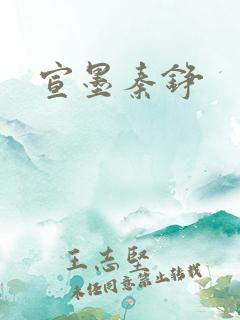 宣墨秦铮
王志坚
未经同意禁止转载